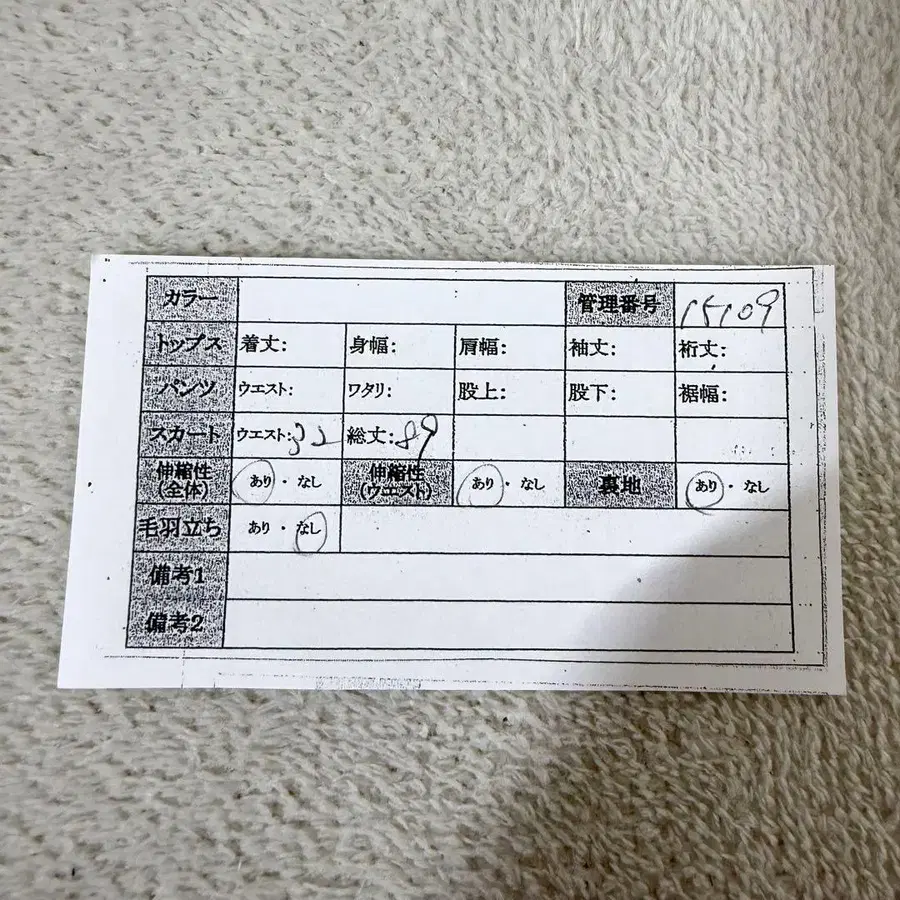 カラー 管理番号 15109
トップス 着丈: 身幅: 肩幅: 袖丈: 裄丈:
パンツ ウエスト: ワタリ: 股上: 股下: 裾幅:
スカート ウエスト:32 総丈:89
伸縮性(全体) あり・なし 伸縮性(ウエスト) あり・なし 裏地 あり・なし
毛羽立ち あり・なし
備考1
備考2